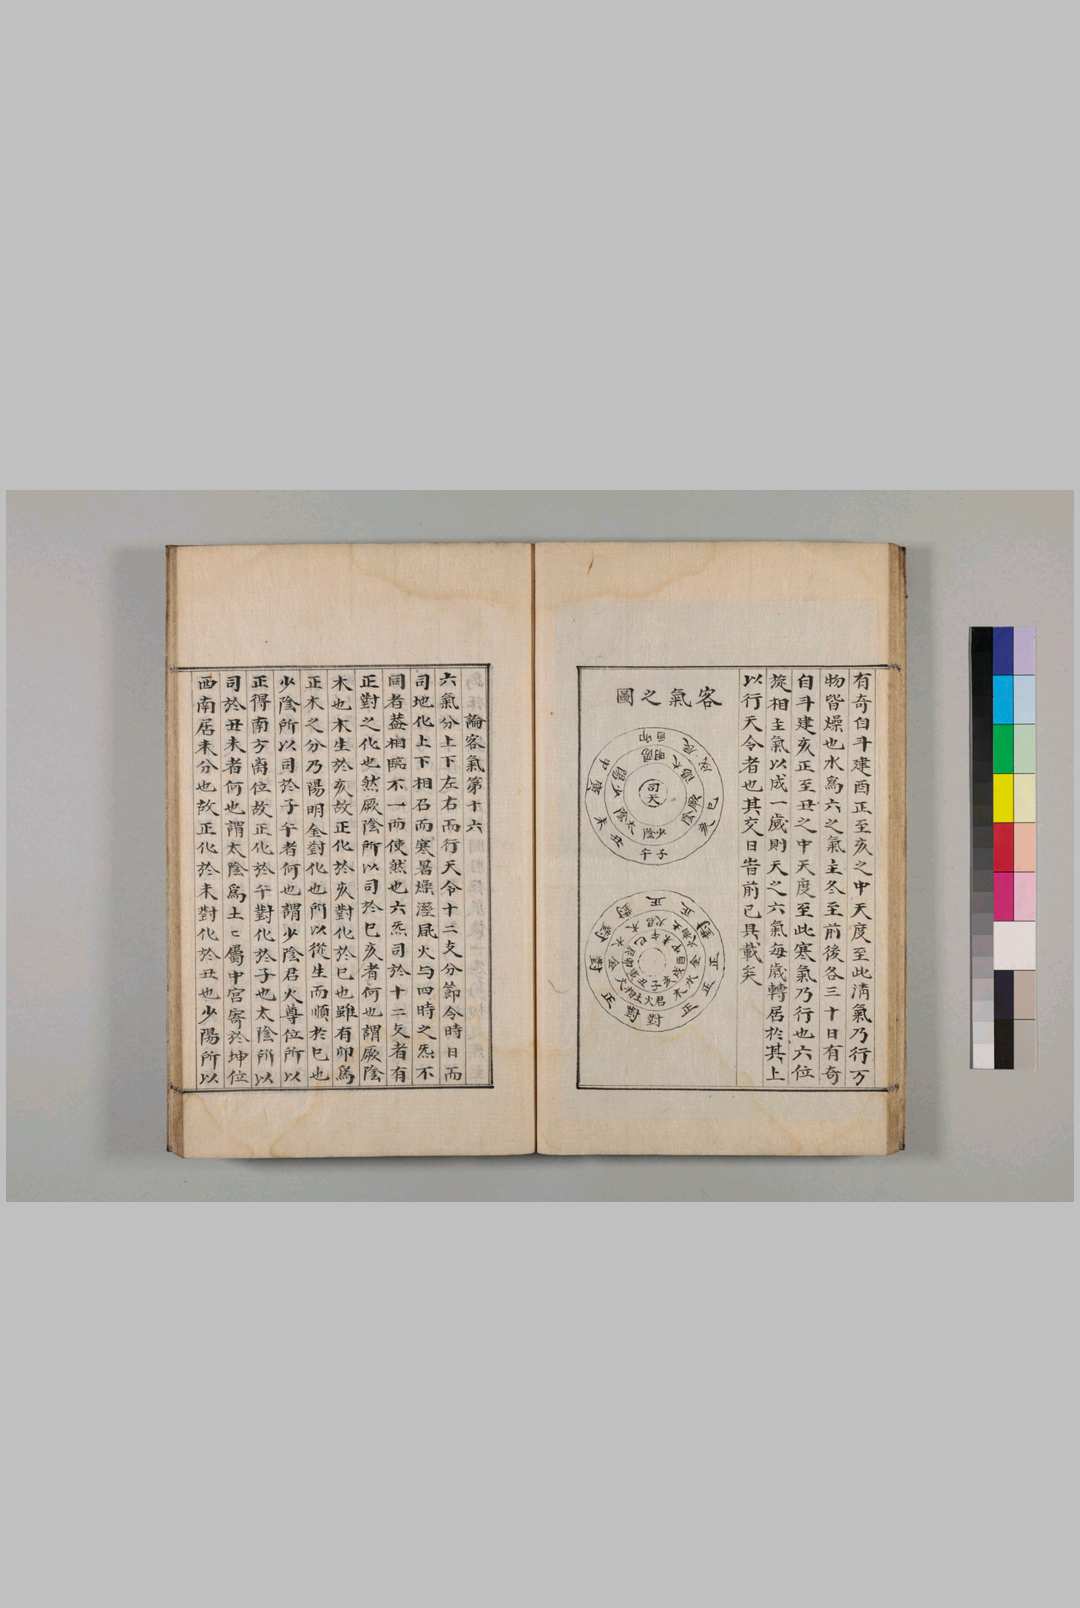 有奇自斗建酉正至亥之中天度至此清氣乃行万
物皆燥也水爲六之氣主冬至前後各三十日有奇
自斗建亥正至丑之中天度至此寒氣乃行也六位
旋相主氣以成一歲則天之六氣每歲轉居於其上
以行天令者也其交日皆前已具載矣
客氣之圖
司天
少陰
太陰
少陽
陽明
太陽
厥陰
子午
丑未
寅申
卯酉
辰戌
巳亥
論客氣第十六
六氣分上下左右而行天令十二支分節令時日而
司地化上下相召而寒暑燥溼風火与四時之炁不
同者葢相臨不一而使然也六炁司於十二支者有
正對之化也然厥陰所以司於巳亥者何也謂厥陰
木也木生於亥故正化於亥對化於巳也雖有卯爲
正木之分乃陽明金對化也所以從生而順於巳也
少陰所以司於子午者何也謂少陰君火尊位所以
正得南方离位故正化於午對化於子也太陰所以
司於丑未者何也謂太陰爲土〻屬中宮寄於坤位
西南居未分也故正化於未對化於丑也少陽所以